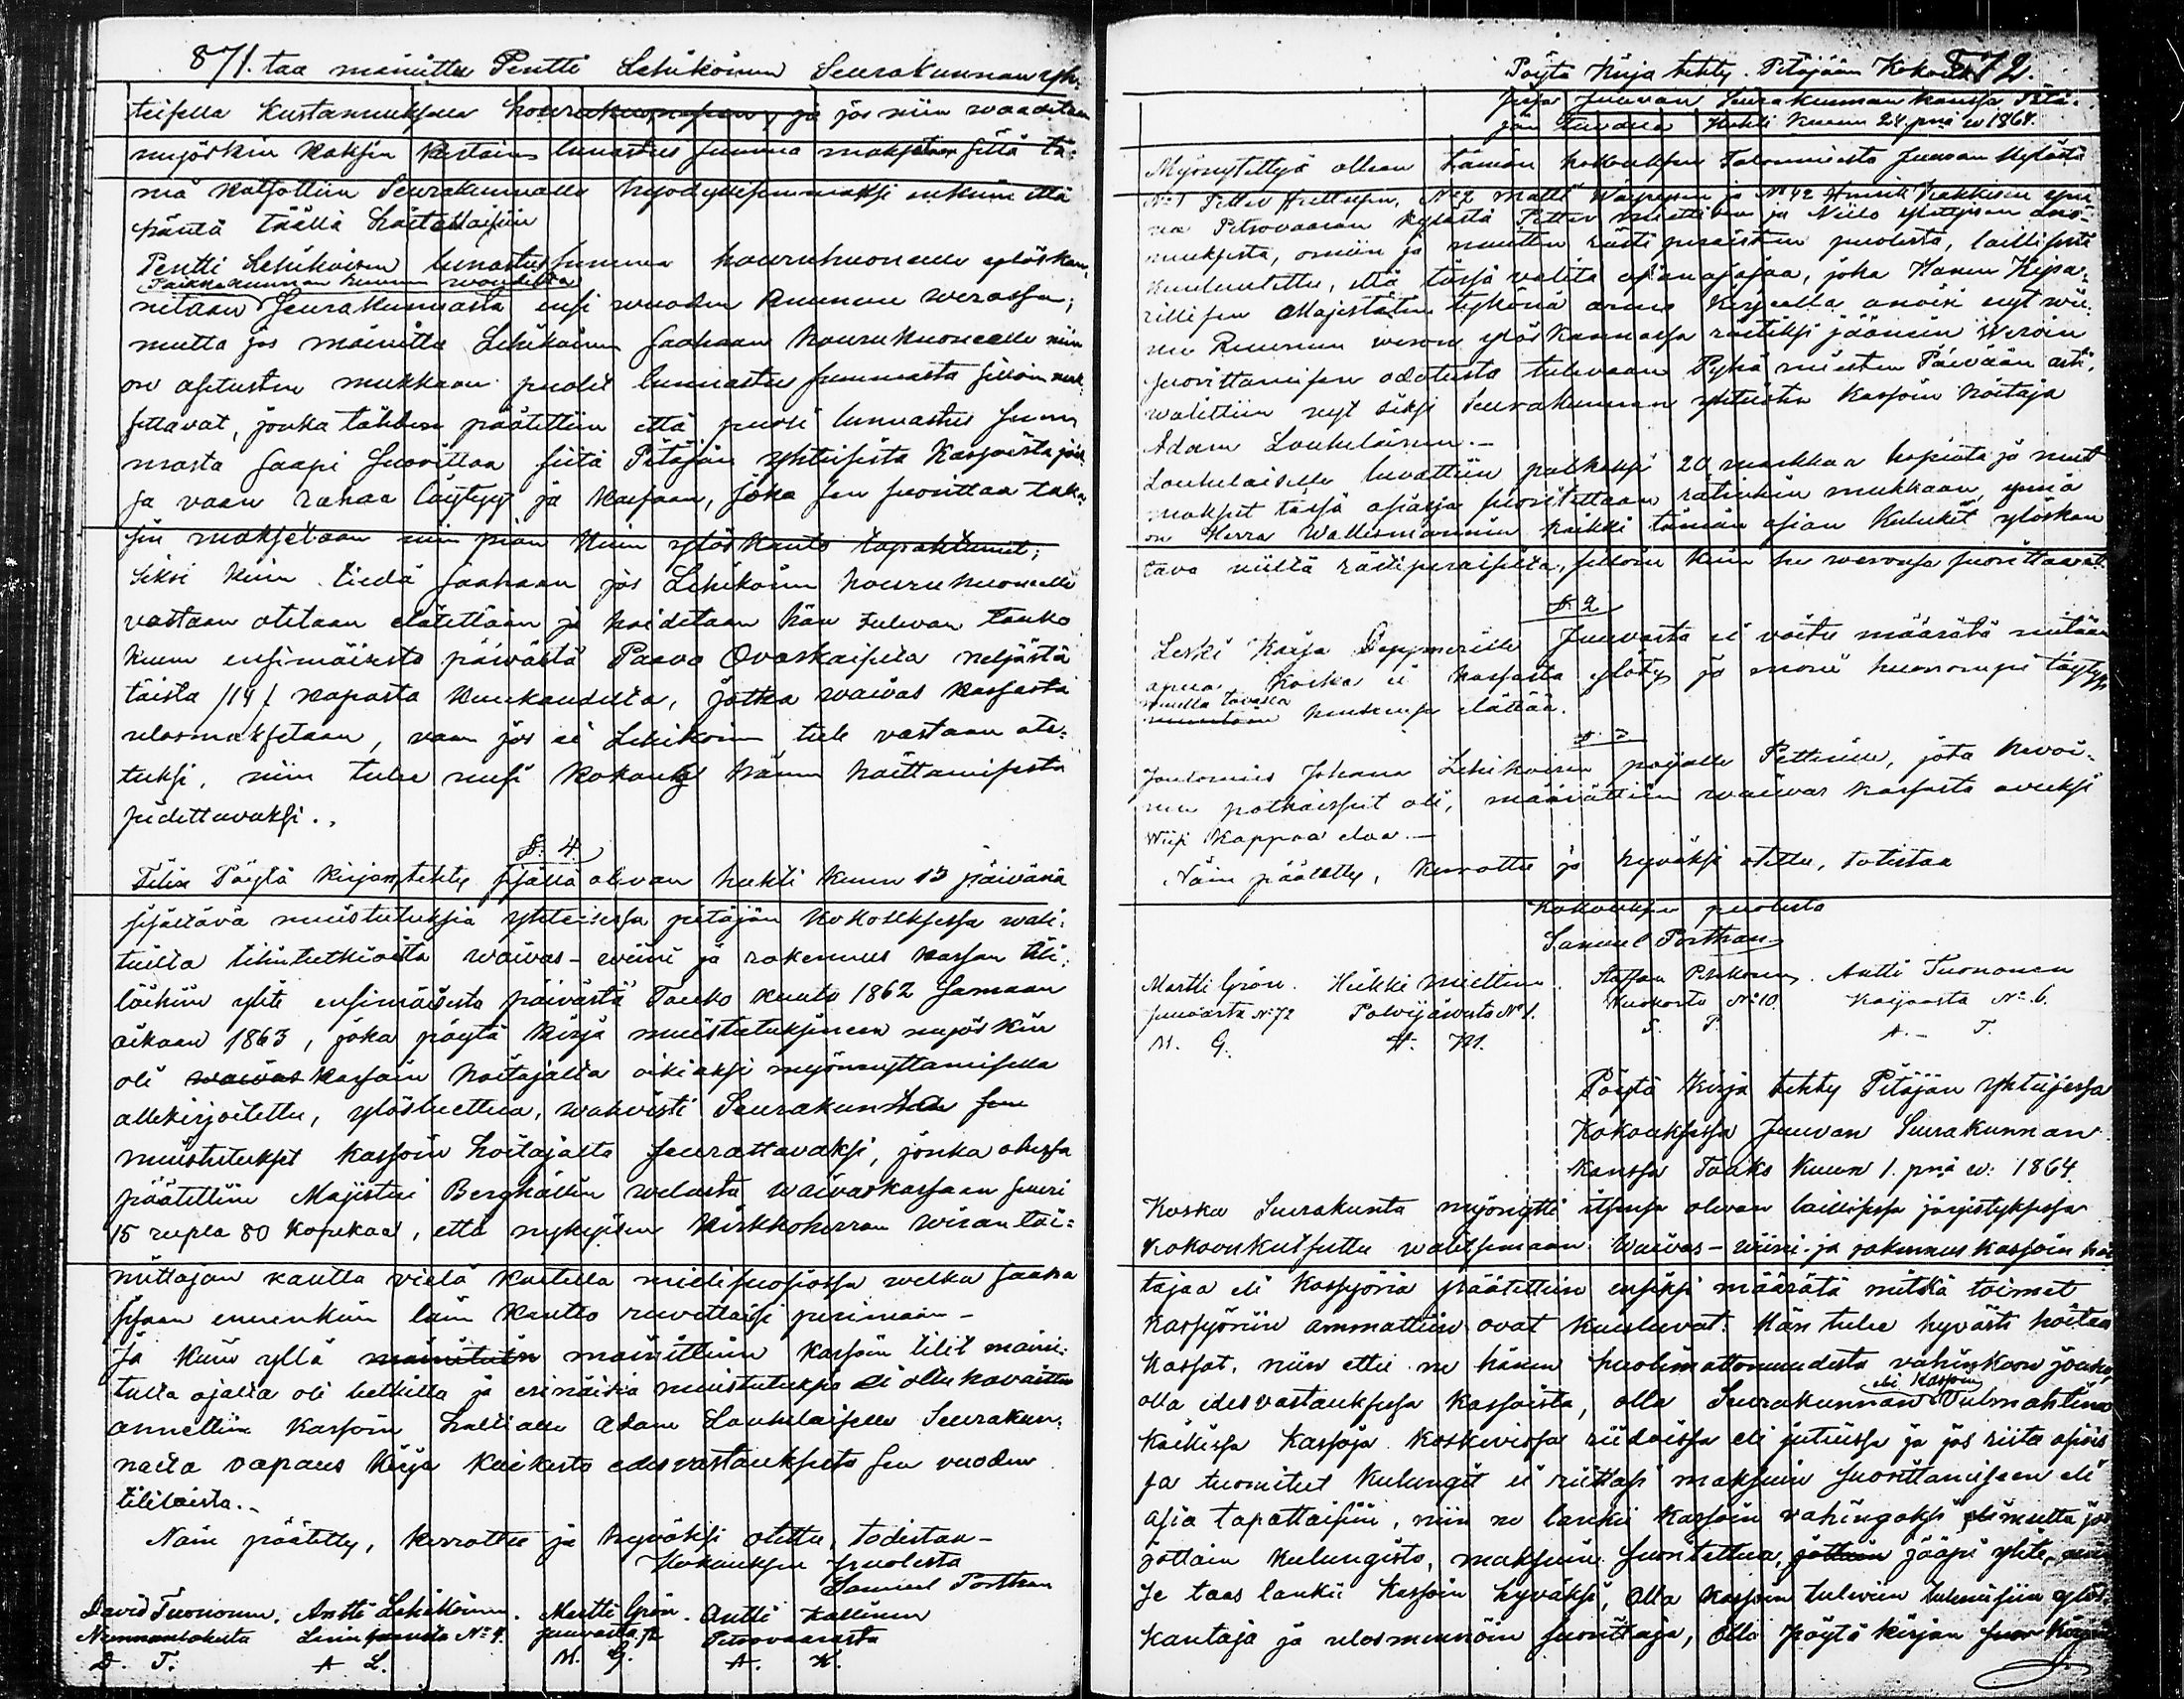 871. taa mainittu Pentti Lehikoinen Seurakunnan yh-
teisella kustannuksella houruhuoneseen, ja jos niin waaditaan
myöskin kaksin kertain lunastus summa maksetaan sillä tä-
mä katsottiin Seurakunnalle hyödyllisemmäksi enkuin että
häntä täällä hoitettaisiin
Pentti Lehikoisen lunastus summa houruhuoneelle ylöskan-
Paikkakunnan kunnan woudilta
netaan Seurakunnasta ensi wuoden Ruunun werossa;
mutta jos mainittu Lehikoinen saahaan houruhuoneelle niin
on asetusten mukkaan puolet lunnastus summasta silloin mak-
settavat, jonka tähden päätettiin että puoli lunnastus sum
masta saapi suorittaa siitä Pitäjän yhteisistä kassoista jois
sa vaan rahaa löytyy ja kassaan, joka sen suorittaa taka-
sin maksetaan niin pian kuin ylöskanto tapahtunut;
Siksi kuin tiedä saahaan jos Lehikoinen houruhuoneelle
vastaan otetaan elätettään ja hoidetaan hän tulevan Touko
kuun ensimäisestä päivästä Paavo Ovaskaiselta neljästä
toista /14/ kapasta kuukaudelta, jotka waivas kassasta
ulosmaksetaan, vaan jos ei Lehikoinen tule vastaan ote-
tuksi, niin tulee uusi kokous hänen hoittamisesta
pidettavaksi..
§. 4.
Tilin Pöytä kirjan, tehty sisällä olevan huhti kuun 13 päivänä
sisältävä muistutuksia yhteisessa pitäjän kokouksessa wali-
tuilta tilintutkioilta waivas- wiini ja rakennus kassan tili-
löihin yhte ensimäisestä päivästä Touko kuuta 1862 samaan
aikaan 1863, joka pöytä kirja muistutuksineen myöskin
oli waivas kassoin hoitajalta oikiaksi myönnyttamisella
allekirjoitettu, ylösluettua, wahvisti Seurakunta sen
muistutukset kassoin hoitajalta seurattavaksi, jonka ohessa
päätettiin Majisteri Berghällin welasta waivaskassaan suuri
15 rupla 80 kopekaa, että nykyisen Kirkkoherran wiran toi-
mittajan kautta vielä koetella mielisuosiossa welka saaha
sisaan ennenkuin lain kautto ruvettaisi perimaan-
Ja kuin yllä mainitut mainittuin kassoin tilit maini-
tulta ajalta oli luettu ja erinäisiä muistutuksia ei ollu havaittu
annettiin kassoin haltialle Adam Louhelaiselle Seurakun-
nalta vapaus kirja kaikesta edesvastauksesta sen vuoden
tililoista.-
Näin päätetty, kerrottu ja hyväksi otettu, todistaa-
Kokouksen puolesta
Samuel Porthan
David Tuononen. Antti Lehikoinen. Martti Grön. Antti Kallinen
Nunnanlahesta №4. Juuvasta 72 Petrovaarasta
D. T. A L. M. G. A. K.
872.
Pöytä Kirja tehty Pitäjään Kokouk
sessa Juuvan Seurakunnan kanssa Pitä-
jän Tuvalla Huhti kuun 24. pnä w 1864.
Myönytettyä olleen tämän kokouksen Talonmiestä Juuvan kylästä
№1 Petter Hattusen, №2 Matti Waparen ja №42 Henrik Kakkisen ynnä
na Petrovaaran kylästä Petter Miettisen ja Niilo
muuksesta, omiin ja muitten rästiperaisten puolesta, laillisesti
kuulutettu, että tässä valita asianajajaa, joka Hanen Keisa-
rillisen Majestätin tykönä armo kirjalla anoisi nyt wii-
me Ruunun weron ylöskannossa rästiksi jäänein Weroin
suorittamisen odotusta tulevaan Pyhä miesten Päivään asti,
walittiin nyt siksi Seurakunnan yhteisten kassoin hoitaja
Adam Louhelainen.-
Louhelaiselle luvattiin palkaksi 20 markkaa hopiata ja muut
maksut tässä asiassa suoritettaan rätinkin mukkaan, ynnä
on Herra Wallesmannin kaikki tämän asian kulukit ylöskan
tava niiltä rästiperaisilta, silloin kuin he weronsa suorittaavat.
§ 2
Leski Kaija Juuvasta ei voitu määrätä mitään
apua koska ei kassasta ylöty ja moni huonompi täytyy
muulla tavalla
henkensä elättää.
§. 3
Joulomies Johana Lehikoisen pojalle Petterille, jota hevoi-
nen potkaissut oli, määrättiin waivas kassasta avuksi
Wiisi Kappaa eloa.-
Näin päätetty, kerrottu ja hyväksi otettu, totistaa
Kokouksen puolesta
Samuel Porthan
Martti Grön. Heikki Miettinen. Staffan Pehkonen. Antti Tuononen
Juuvasta №72 Polvijärvestä №1. №10. №6.
M. G. H. M. S. P. A.- T.
Pöytä Kirja tehty Pitäjän yhteisessa
Kokouksessa Juuvan Seurakunnan
kanssa Touko kuun 1. pnä w. 1864.
Koska Seurakunta myönytti itsensa olevan laillisessa järjestyksessä
kokoonkutsuttu walitsemaan Waivas- wiini- ja rakennus kassoin hoi
tajaa eli kassyöriä päätettiin ensiksi määrätä mitkä toimet
kassyöriin ammattiin ovat kuuluvat: Hän tulee hyvästi hoitaa
kassat, niin ettei ne hänen huolimattomuudesta vahinkoon jouhu,
olla edesvastauksessa kassoista, olla Seurakunnan eli kassoin Vulmahtina
kaikissa kassoja koskevissa riidoissa eli jutuissa ja jos riita asiois
sa tuomitut kulungit ei riittäsi maksuin suorittamiseen eli
asia tapattaisiin, niin ne lankii kassoin vahingoksi eli mutta jos
jottain kulungista, maksuin suoritettua, jottain jääpi ylite, niin
se taas lankii kassoin hyväksi, Olla kassoin tulewiin tulemisiin ylös-
kantaja ja ulosmenoin suorittaja, Olla pöytä kirjan